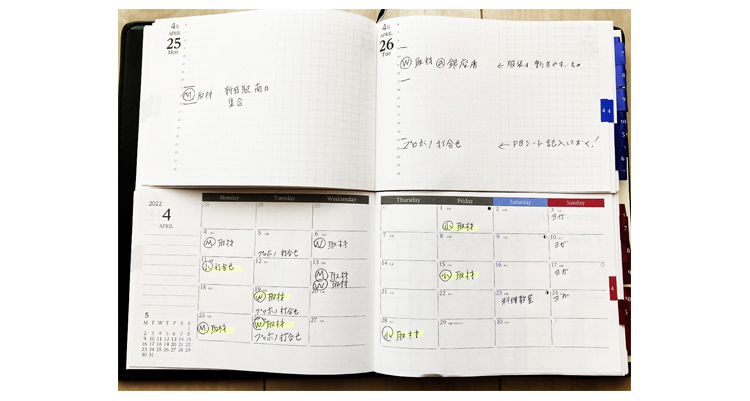 4月
APRIL
25
Mon
Ⓜ 取材 新宿駅 南口
集合
4月
APRIL
26
Tue
Ⓦ 取材 @銀座
プロボノ打合せ
← FBシート記入しておく!
2022
4
APRIL
Monday Tuesday Wednesday
28 29 30
4 5 6
Ⓜ 取材 プロボノ打合せ Ⓦ 取材
11 12 13
㋛ 打合せ Ⓜ 取材
Ⓦ 取材
18 19 20
Ⓦ 取材
プロボノ打合せ
25 26 27
Ⓜ 取材 Ⓦ 取材
プロボノ打合せ
5
M T W T F S S
1
2 3 4 5 6 7 8
9 10 11 12 13 14 15
16 17 18 19 20 21 22
23 24 25 26 27 28 29
30 31
Thursday Friday Saturday Sunday
1 2 3
㋛ 取材 ヨガ
7 8 9 10
ヨガ
14 15 16 17
取材 ヨガ
21 22 23 24
料理教室 ヨガ
28 29 30
取材
4